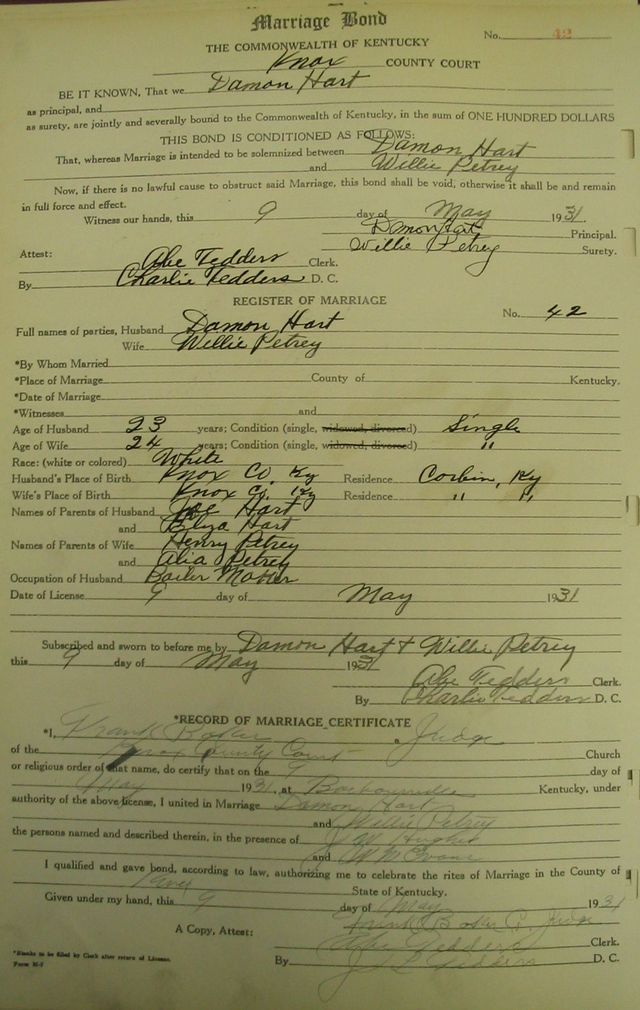 Marriage Bond
No. 42
THE COMMONWEALTH OF KENTUCKY
Knox COUNTY COURT
BE IT KNOWN, That we Damon Hart
as principal, and
as surety, are jointly and severally bound to the Commonwealth of Kentucky, in the sum of ONE HUNDRED DOLLARS
THIS BOND IS CONDITIONED AS FOLLOWS:
That, whereas Marriage is intended to be solemnized between Damon Hart
and Willie Petrey
Now, if there is no lawful cause to obstruct said Marriage, this bond shall be void, otherwise it shall be and remain
in full force and effect.
Witness our hands, this 9 day of May 1931
Damon Hart Principal.
Willie Petrey Surety.
Attest: Abe Tedders Clerk.
By Charlie Tedders D. C.
REGISTER OF MARRIAGE
No. 42
Full names of parties, Husband Damon Hart
Wife Willie Petrey
*By Whom Married
*Place of Marriage County of Kentucky.
*Date of Marriage
*Witnesses and
Age of Husband 23 years; Condition (single, widowed, divorced) Single
Age of Wife 24 years; Condition (single, widowed, divorced) "
Race: (white or colored) White
Husband's Place of Birth Knox Co, Ky Residence Corbin, Ky
Wife's Place of Birth Knox Co. Ky Residence " "
Names of Parents of Husband Joe Hart
and Eliza Hart
Names of Parents of Wife Henry Petrey
and Alia Petrey
Occupation of Husband Boiler
Date of License 9 day of May 1931
Subscribed and sworn to before me by Damon Hart + Willie Petrey
this 9 day of May 1931
Abe Tedders Clerk.
By Charlie Tedders D. C.
*RECORD OF MARRIAGE CERTIFICATE
*I, Frank Baker a Judge
of the Knox County Court Church
or religious order of that name, do certify that on the 9 day of
May 1931, at Barbourville Kentucky, under
authority of the above license, I united in Marriage Damon Hart
and Willie Petrey
the persons named and described therein, in the presence of J. M. Hughes
and W M Evans
I qualified and gave bond, according to law, authorizing me to celebrate the rites of Marriage in the County of
Knox State of Kentucky.
Given under my hand, this 9 day of May 1931
Frank Baker C. Judge
A Copy, Attest: Abe Tedders Clerk.
By Tedders D. C.
*Blanks to be filled by Clerk after return of License.